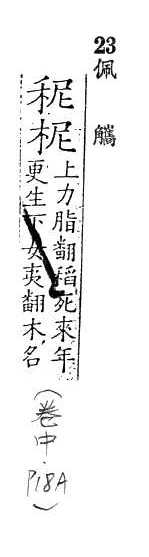 23
佩觿
秜柅
上力脂翻稻死來年
更生下女夷翻木名
(卷中.
P18A)